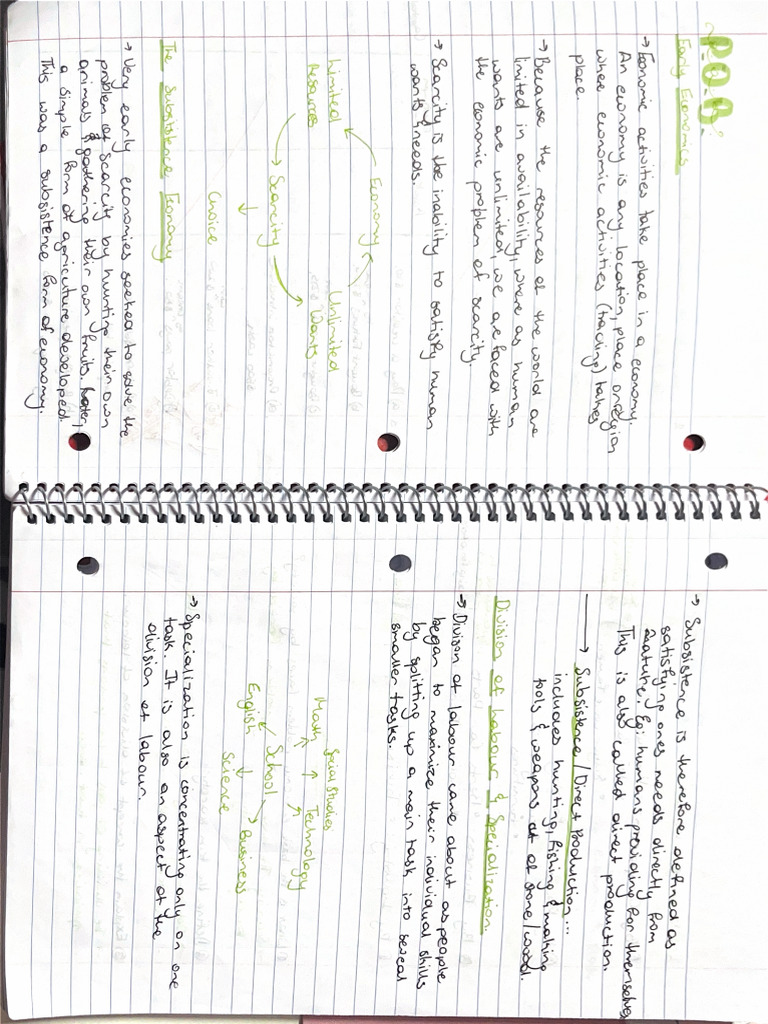 P.O.B:
Early Economics
→ Economic activities take place in a economy.
An economy is any location, place or region
where economic activities (trading) takes
place.
→ Because the resources of the world are
limited in availability, where as human
wants are unlimited, we are faced with
the economic problem of scarcity.
→ Scarcity is the inability to satisfy human
wants & needs.
Economy
Limited Resources
Unlimited Wants
Scarcity
Choice
The Subsistence Economy
→ Very early economies seeked to solve the
problem of scarcity by hunting their own
animals & gathering their own fruits. Later,
a simple form of agriculture developed.
This was a subsistence form of economy.
→ Subsistence is therefore defined as
satisfying ones needs directly from
nature. Eg: humans providing for themselves
This is also called direct production.
→ Subsistence/Direct Production...
includes hunting, fishing & making
tools & weapons at of stone/wood.
Division of labour & Specialization.
→ Divison of labour came about as people
began to maximize their individual skills
by splitting up a main task into several
smaller tasks.
Social Studies
Math
Technology
School
English
Business
Science
→ Specialization is concentrating only on one
task. It is also an aspect of the
division of labour.